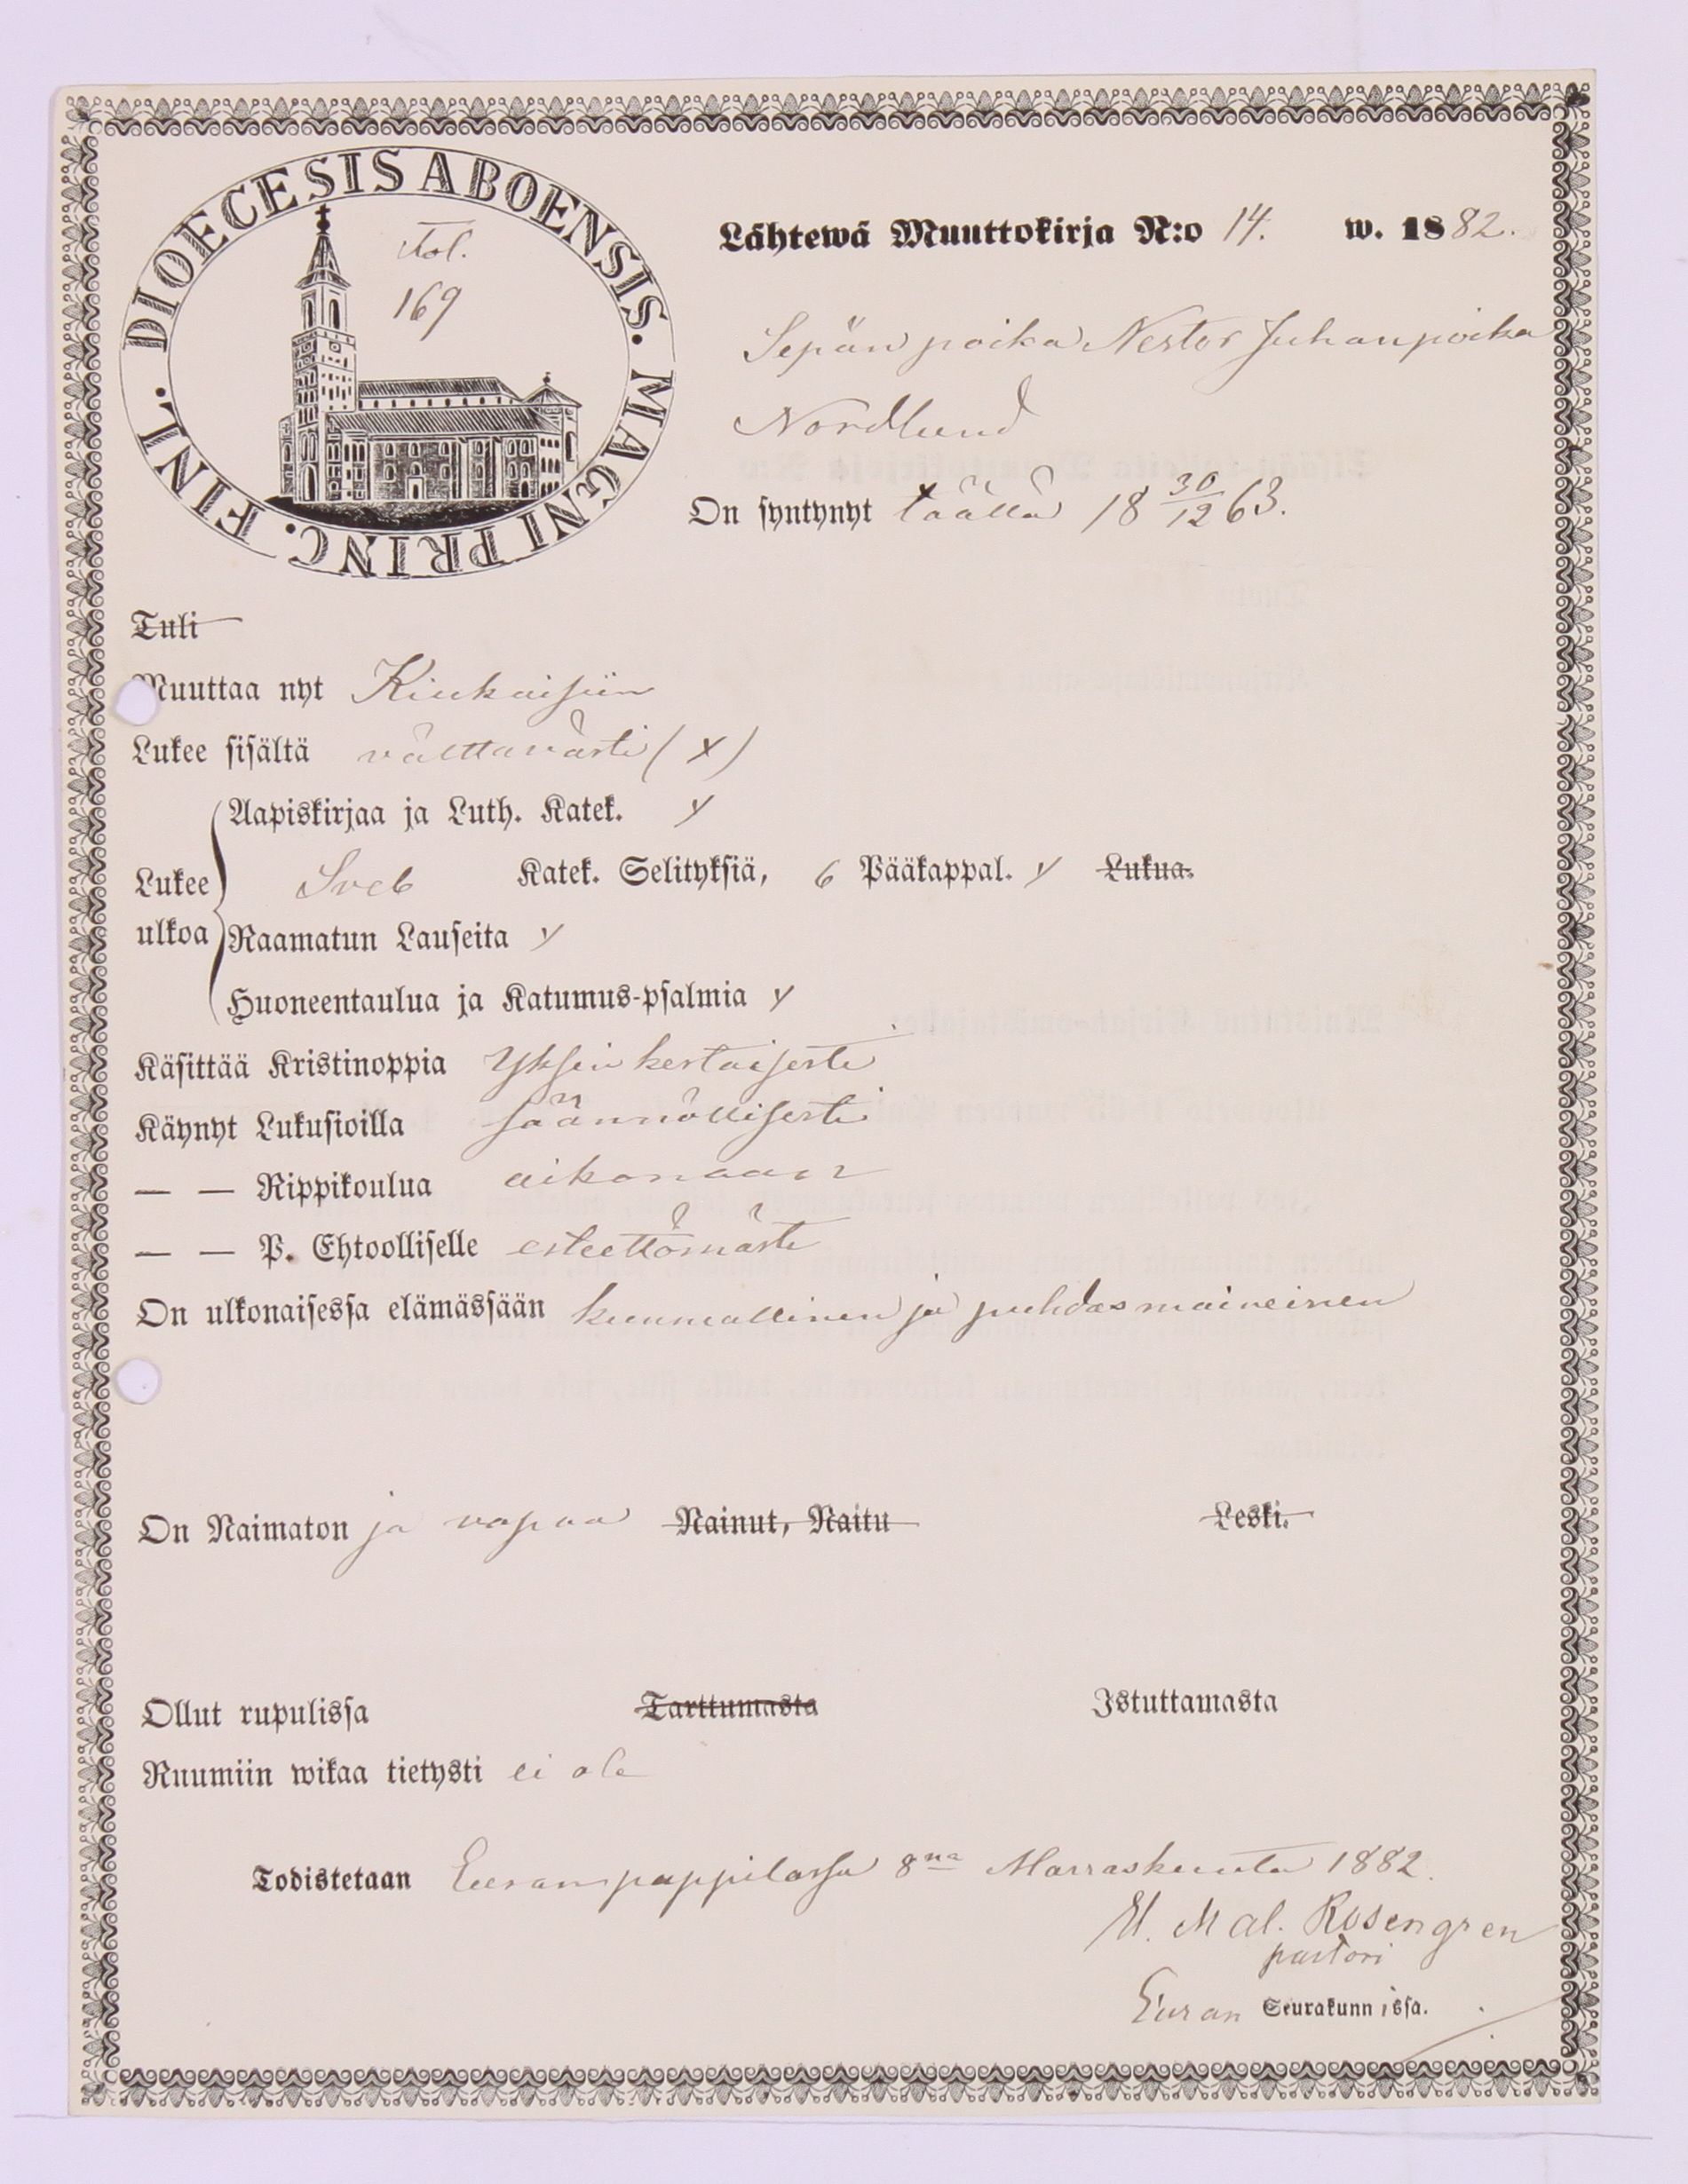 DIOECESIS ABOENSIS. MAGNI PRINC. FINL.
Fol.
169
Lähtewä Muuttokirja N:o 14. w. 1882.
Sepän poika Nestor Juhanpoika
Nordlund
On syntynyt täällä 18 30/12 63.
Tuli
Muuttaa nyt Kiukaisiin
Lukee sisältä välttävästi (x)
Aapiskirjaa ja Luth. Katek. y
Lukee ulkoa Sveb Katek. Selityksiä, 6 Pääkappal. y Lukua.
Raamatun Lauseita y
Huoneentaulua ja Katumus-psalmia y
Käsittää Kristinoppia Yksinkertaisesti
Käynyt Lukusioilla säännöllisesti
— — Rippikoulua aikanaan
— — P. Ehtoolliselle esteettömästi
On ulkonaisessa elämässään kunniallinen ja puhdasmaineinen
On Naimaton ja vapaa Nainut, Naitu Leski.
Ollut rupulissa Tarttumasta Istuttamasta
Ruumiin wikaa tietysti ei ole
Todistetaan Euran pappilassa 8na Marraskuuta 1882.
Mal. Rosengren
pastori
Euran Seurakunnissa.